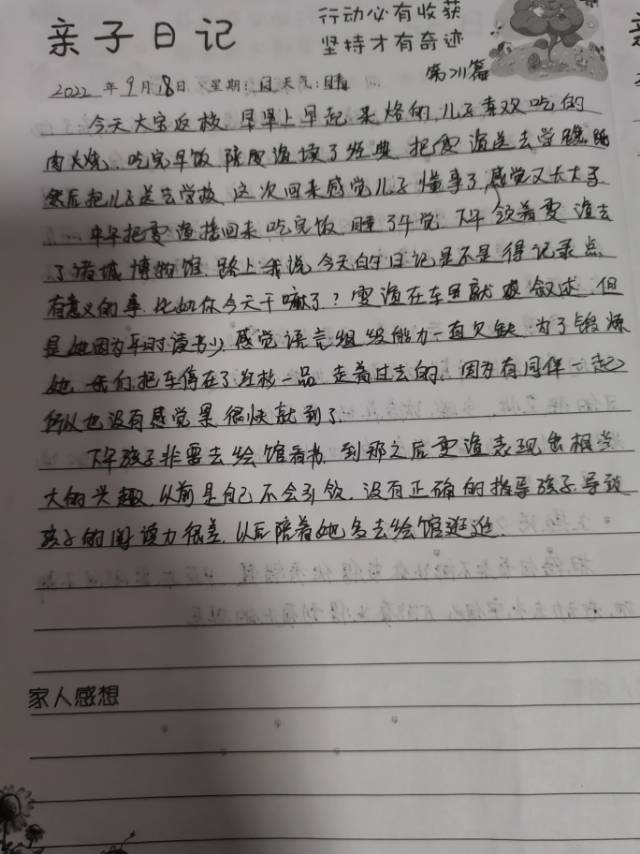 亲子日记
行动必有收获
坚持才有奇迹
第211篇
2022年9月18日 星期:日 天气:晴
今天大宝返校,早早上早起来烙的儿子喜欢吃的
肉火烧,吃完早饭陪雯谊读了经典,把雯谊送去学跳
然后把儿子送去学校,这次回来感觉儿子懂事了,感觉又长大了
中午把雯谊接回来吃完饭,睡了午觉,下午领着雯谊去
了诸城博物馆,路上我说今天的日记是不是得记录点
有意义的事,比如你今天干嘛了?雯谊在车里就叙述,但
是她因为平时读书少,感觉语言组织能力一直欠缺,为了锻炼
她,我们把车停在了一品,走着过去的,因为有同伴一起
所以也没有感觉累,很快就到了.
下午孩子非要去绘馆看书,到那之后雯谊表现出相当
大的兴趣,以前是自己不会引领,没有正确的指导孩子,导致
孩子的阅读力很差,以后陪着她多去绘馆逛逛.
家人感想